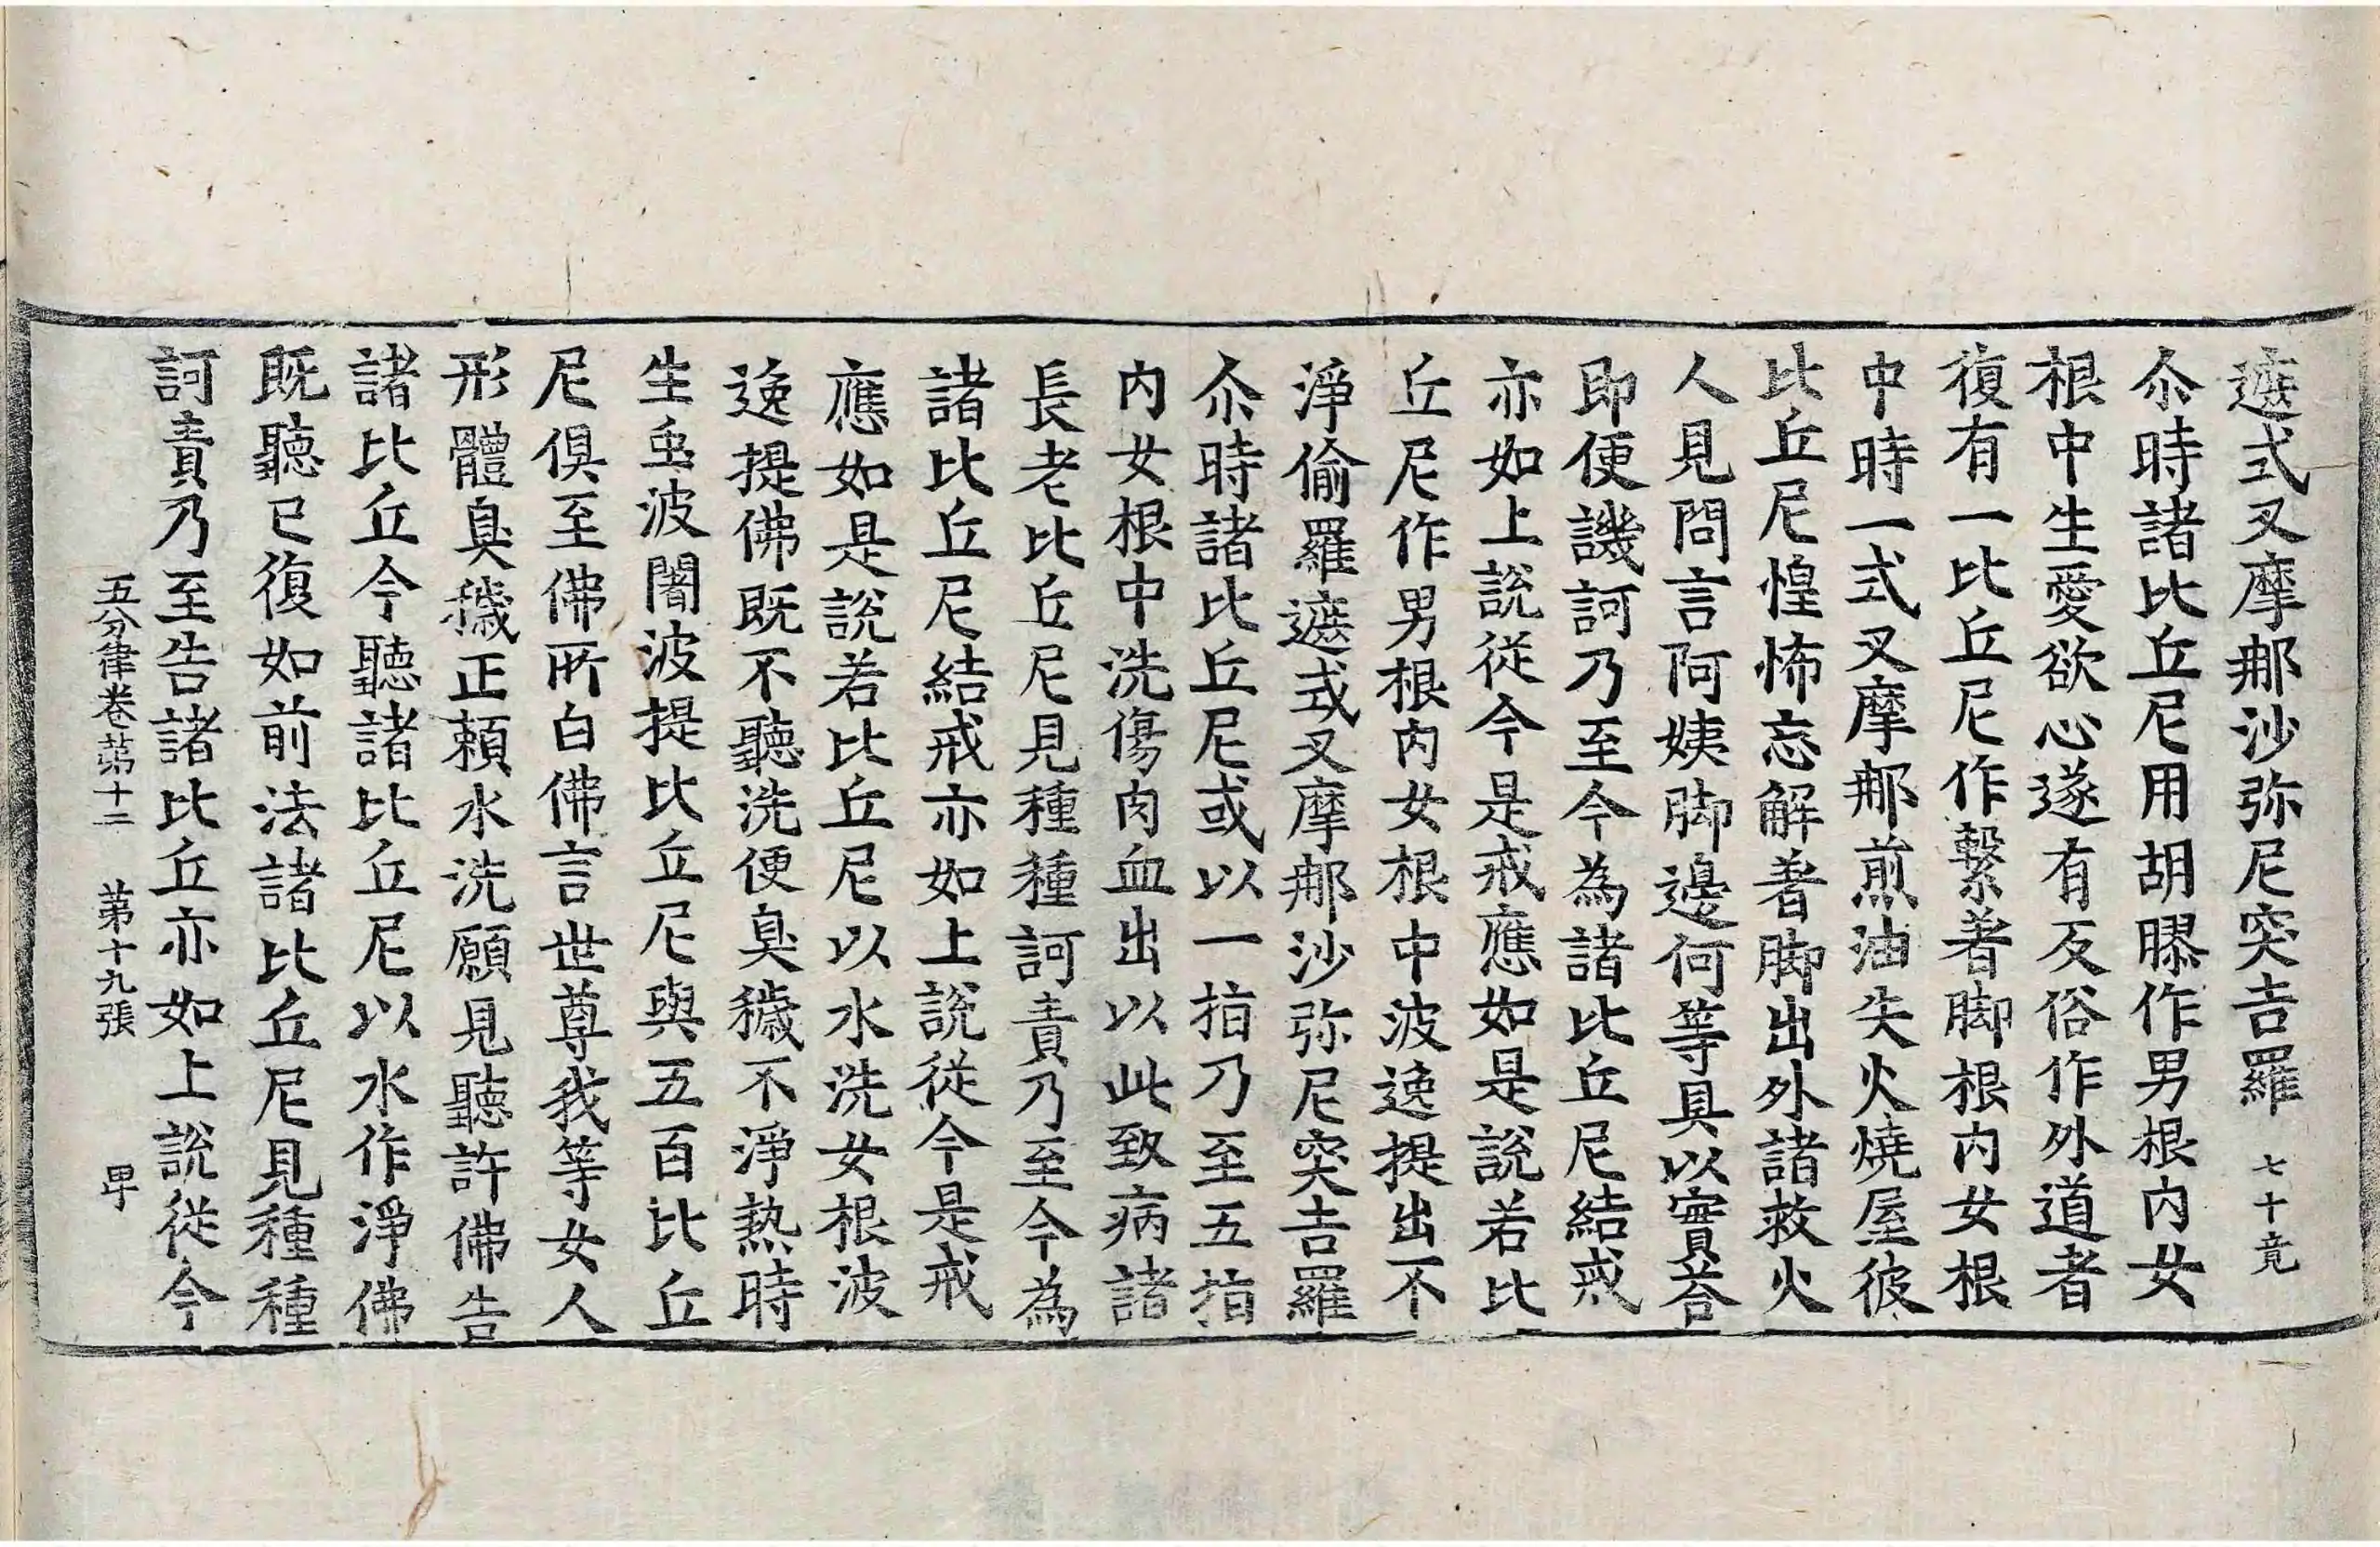 遮式叉摩那沙弥尼突吉羅 七十竟
尒時諸比丘尼用胡膠作男根內女
根中生愛欲心遂有反俗作外道者
復有一比丘尼作繫著脚根內女根
中時一式叉摩那煎油失火燒屋彼
比丘尼惶怖忘解著脚出外諸救火
人見問言阿姨脚邊何等具以實荅
即便譏訶乃至今為諸比丘尼結戒
亦如上說從今是戒應如是說若比
丘尼作男根內女根中波逸提出不
淨偷羅遮式叉摩那沙弥尼突吉羅
尒時諸比丘尼或以一指乃至五指
內女根中洗傷肉血出以此致病諸
長老比丘尼見種種訶責乃至今為
諸比丘尼結戒亦如上說從今是戒
應如是說若比丘尼以水洗女根波
逸提佛既不聽洗便臭穢不淨熱時
生虫波闍波提比丘尼與五百比丘
尼俱至佛所白佛言世尊我等女人
形體臭穢正賴水洗願見聽許佛告
諸比丘今聽諸比丘尼以水作淨佛
既聽已復如前法諸比丘尼見種種
訶責乃至告諸比丘亦如上說從今
五分律卷苐十二 苐十九張